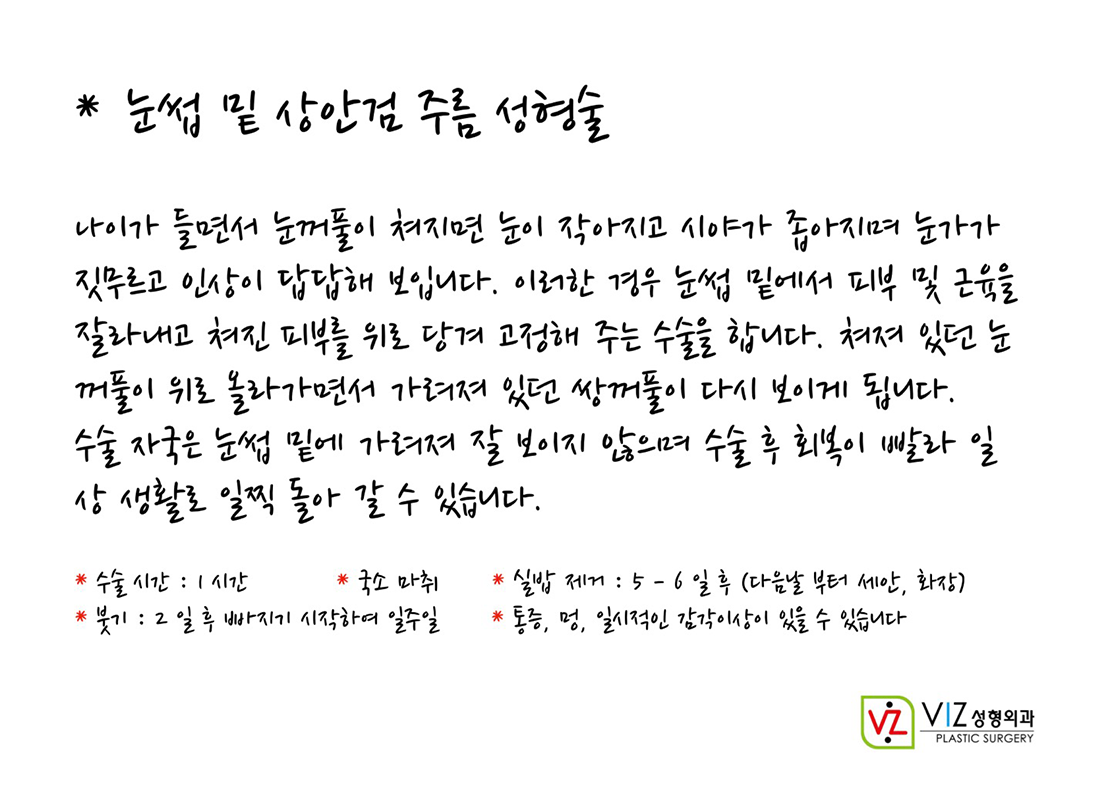 * 눈썹 밑 상안검 주름 성형술
나이가 들면서 눈꺼풀이 쳐지면 눈이 작아지고 시야가 좁아지며 눈가가
짓무르고 인상이 답답해 보입니다. 이러한 경우 눈썹 밑에서 피부 및 근육을
잘라내고 쳐진 피부를 위로 당겨 고정해 주는 수술을 합니다. 쳐져 있던 눈
꺼풀이 위로 올라가면서 가려져 있던 쌍꺼풀이 다시 보이게 됩니다.
수술 자국은 눈썹 밑에 가려져 잘 보이지 않으며 수술 후 회복이 빨라 일
상 생활로 일찍 돌아 갈 수 있습니다.
* 수술 시간 : 1 시간 * 국소 마취 * 실밥 제거 : 5 - 6 일 후 (다음날 부터 세안, 화장)
* 붓기 : 2 일 후 빠지기 시작하여 일주일 * 통증, 멍, 일시적인 감각이상이 있을 수 있습니다
VZ VIZ 성형외과
PLASTIC SURGERY